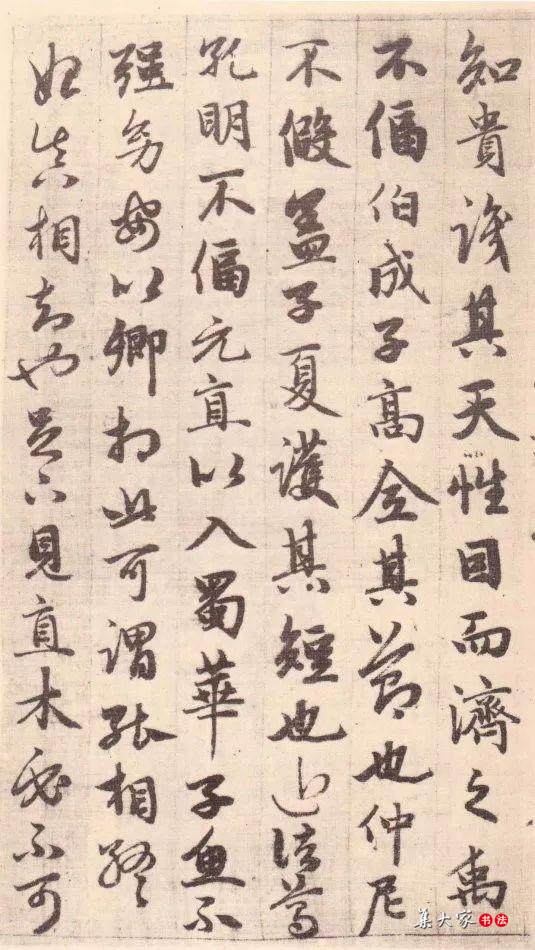 知貴識其天性因而濟之禹
不偪伯成子高全其節也仲尼
不假蓋子夏護其短也近諸葛
孔明不偪元直以入蜀華子魚不
強幼安以卿相此可謂能相終
始真相知也足下見直木必不可
集大家 书法